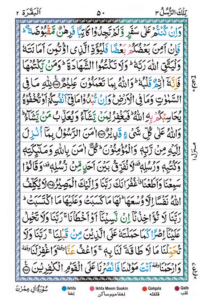 تِلْكَ الرُّسُلُ ٣ ٥٠ اَلْبَقَرَة ٢
وَاِنْ كُنْتُمْ عَلٰى سَفَرٍ وَّلَمْ تَجِدُوْا كَاتِبًا فَرِهٰنٌ مَّقْبُوْضَةٌ
فَاِنْ اَمِنَ بَعْضُكُمْ بَعْضًا فَلْيُؤَدِّ الَّذِى اؤْتُمِنَ اَمَانَتَهٗ
وَلْيَتَّقِ اللّٰهَ رَبَّهٗ وَلَا تَكْتُمُوا الشَّهَادَةَ وَمَنْ يَّكْتُمْهَا
فَاِنَّهٗٓ اٰثِمٌ قَلْبُهٗ وَاللّٰهُ بِمَا تَعْمَلُوْنَ عَلِيْمٌ لِلّٰهِ مَا فِى
السَّمٰوٰتِ وَمَا فِى الْاَرْضِ وَاِنْ تُبْدُوْا مَا فِىْٓ اَنْفُسِكُمْ اَوْ تُخْفُوْهُ
يُحَاسِبْكُمْ بِهِ اللّٰهُ فَيَغْفِرُ لِمَنْ يَّشَآءُ وَيُعَذِّبُ مَنْ يَّشَآءُ
وَاللّٰهُ عَلٰى كُلِّ شَىْءٍ قَدِيْرٌ اٰمَنَ الرَّسُوْلُ بِمَآ اُنْزِلَ
اِلَيْهِ مِنْ رَّبِّهٖ وَالْمُؤْمِنُوْنَ كُلٌّ اٰمَنَ بِاللّٰهِ وَمَلٰٓئِكَتِهٖ
وَكُتُبِهٖ وَرُسُلِهٖ لَا نُفَرِّقُ بَيْنَ اَحَدٍ مِّنْ رُّسُلِهٖ وَقَالُوْا
سَمِعْنَا وَاَطَعْنَا غُفْرَانَكَ رَبَّنَا وَاِلَيْكَ الْمَصِيْرُ لَا يُكَلِّفُ
اللّٰهُ نَفْسًا اِلَّا وُسْعَهَا لَهَا مَا كَسَبَتْ وَعَلَيْهَا مَا اكْتَسَبَتْ
رَبَّنَا لَا تُؤَاخِذْنَآ اِنْ نَّسِيْنَآ اَوْ اَخْطَاْنَا رَبَّنَا وَلَا تَحْمِلْ
عَلَيْنَآ اِصْرًا كَمَا حَمَلْتَهٗ عَلَى الَّذِيْنَ مِنْ قَبْلِنَا رَبَّنَا وَلَا
تُحَمِّلْنَا مَا لَا طَاقَةَ لَنَا بِهٖ وَاعْفُ عَنَّا وَاغْفِرْ لَنَا
وَارْحَمْنَا اَنْتَ مَوْلٰىنَا فَانْصُرْنَا عَلَى الْقَوْمِ الْكٰفِرِيْنَ
Ikhfa Meem Saakin Qalqala